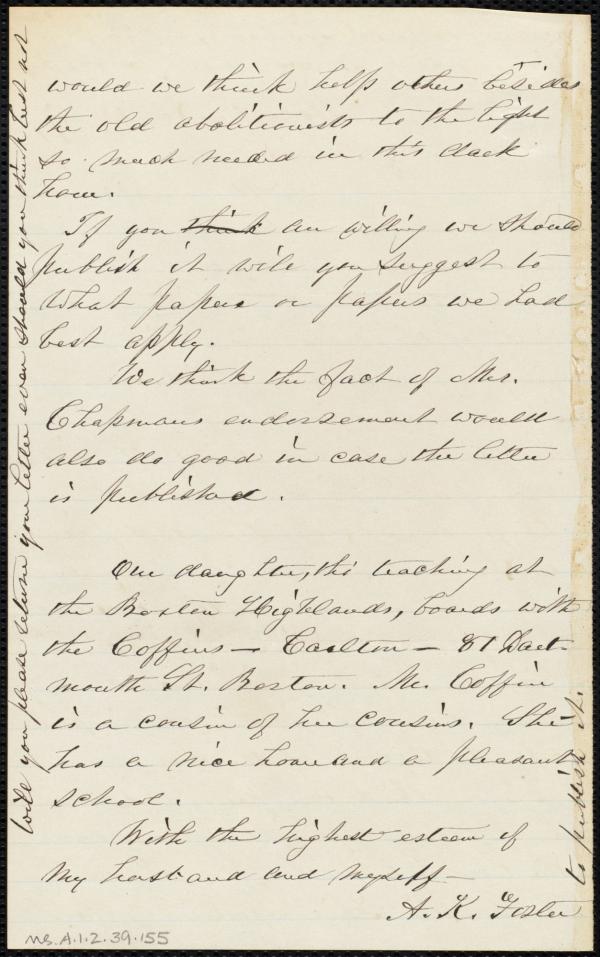 would we think help others besides
the old abolitionists to the light
so much needed in this dark
hour.
If you think are willing we should
publish it will you suggest to
what paper or papers we had
best apply.
We think the fact of Mrs.
Chapmans endorsement would
also do good in case the letter
is published.
Our daughter, tho' teaching at
the Boston Highlands, boards with
the Coffins — Carlton — 81 Dart-
mouth St. Boston. Mr. Coffin
is a cousin of her cousins. She
has a nice home and a pleasant
school.
With the highest esteem of
my husband and myself —
A. K. Foster
Will you please return your letter even should you think best not
to publish it.
Ms.A.1.2.39.155